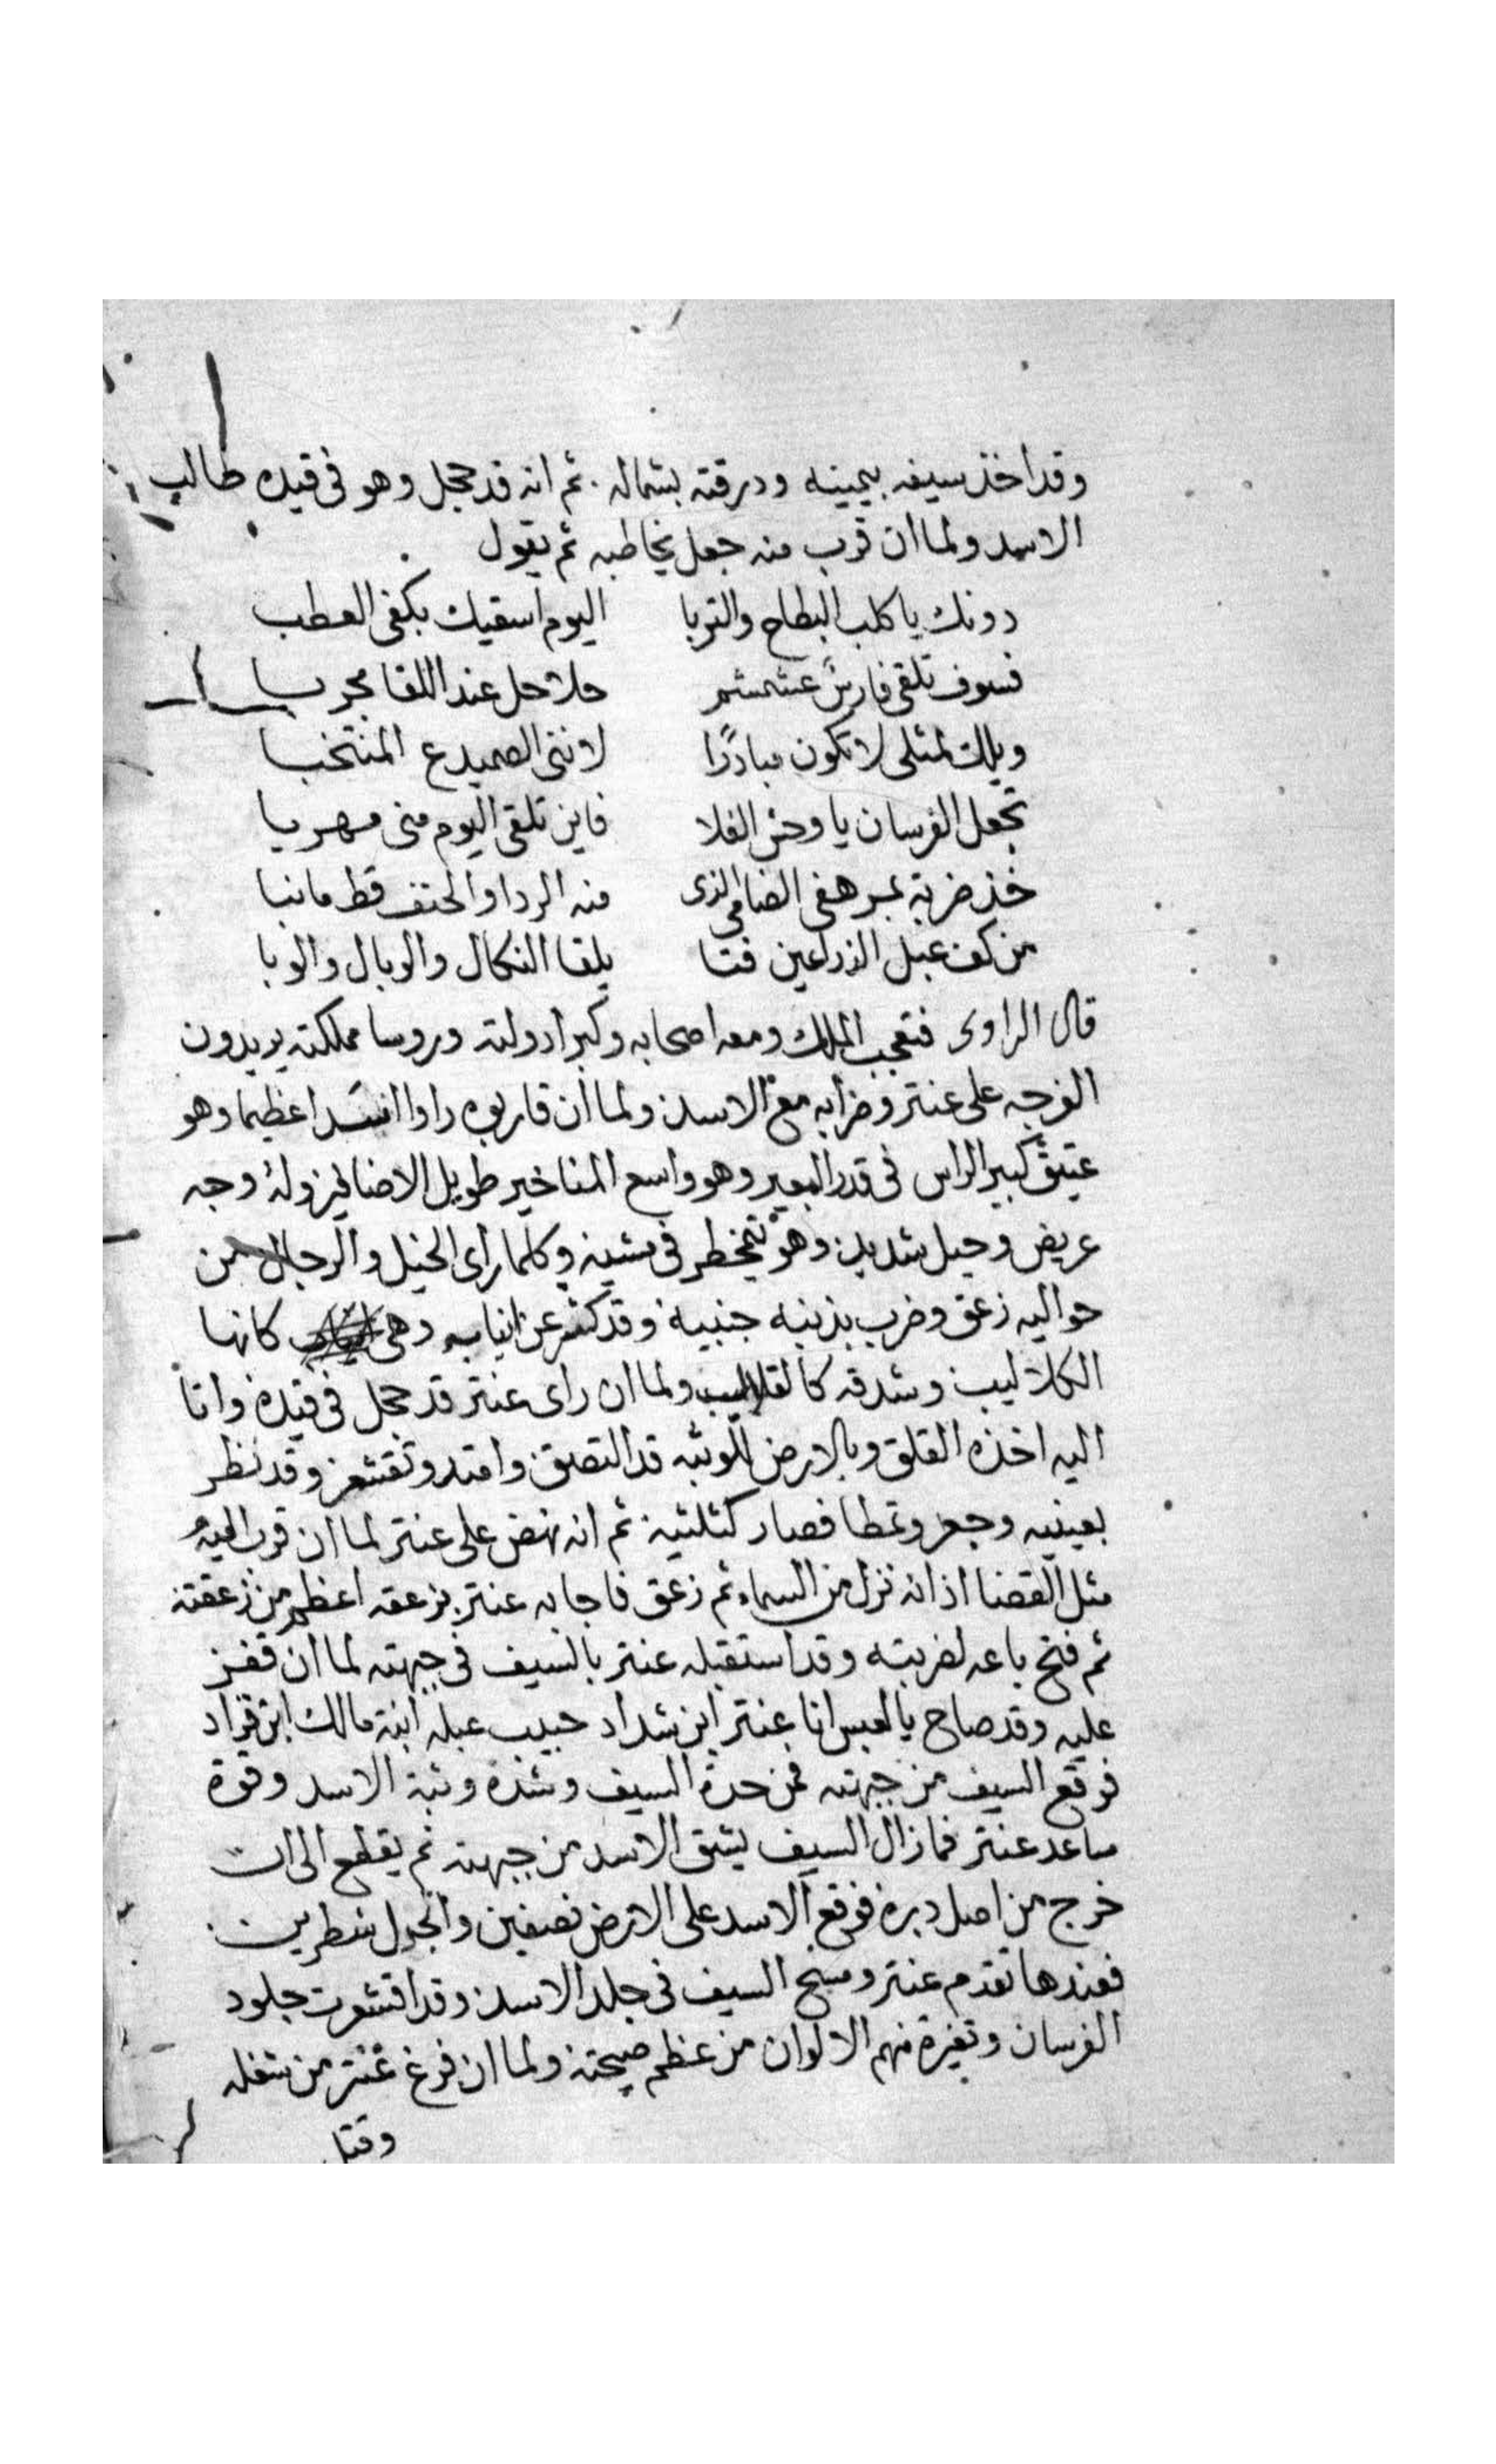 وقد اخذ سيفه بيمينه ودرقته بشماله . ثم انه قد حجل وهو فى قيده طالب
الاسد ولما ان قرب منه جعل يخاطبه ثم يقول
دونك يا كلب البطاح والتربا    اليوم اسقيك بكفى العطب
فسوف تلقى فارسً عشمشم    حلاحل عند اللقا مجربا
ويلك لمثلى لا تكون مبادرًا    لاننى الصميدع المنتخبا
تجعل الفرسان يا وحش الفلا    فاين تلقى اليوم منى مهربا
خذ ضربة بمرهفى الضامى الذى    منه الردا والحتف قط ما نبا
من كف عبل الذراعين فتا    يلقا النكال والوبال والوبا
قال الراوى فتعجب الملك ومعه اصحابه وكبرا دولته وروسا مملكته يريدون
الفرجه على عنتر وضرابه مع الاسد ولما ان قاربوه راوا اسدا عظيما وهو
عتيق كبير الراس فى قدر البعير وهو واسع المناخير طويل الاضافير وله وجه
عريض وحيل شديد وهو يتمخطر فى مشيته وكلما راى الخيل والرجال من
حواليه زعق وضرب بذنبه جنبيه وقد كشر عن انيابه وهى كانها
الكلاليب وشدقه كالقلاليب ولما ان راى عنتر قد حجل فى قيده واتا
اليه اخذه القلق وبالارض للوثبه قد التصق وامتد وتقشعر وقد نظر
بعينيه وجعر وتمطا فصار كثلثيه ثم انه نهض على عنتر لما ان قرب اليه
مثل القضا اذا نه نزل من السماء ثم زعق فاجابه عنتر بزعقه اعظم من زعقته
ثم فتح باعه لضربته وقد استقبله عنتر بالسيف فى جبهته لما ان قفز
عليه وقد صاح يا لعبس انا عنتر ابن شداد حبيب عبله ابنة مالك ابن قراد
فوقع السيف من جبهته فمن حدة السيف وشدة وثبة الاسد وقوة
ساعد عنتر فما زال السيف يشق الاسد من جبهته ثم يقطع الى ان
خرج من اصل دبره فوقع الاسد على الارض نصفين وانجدل شطرين
فعندها تقدم عنتر ومسح السيف فى جلد الاسد وقد اقشعرت جلود
الفرسان وتغيرة منهم الالوان من عظم صيحته ولما ان فرغ عنتر من شغله
وقتل